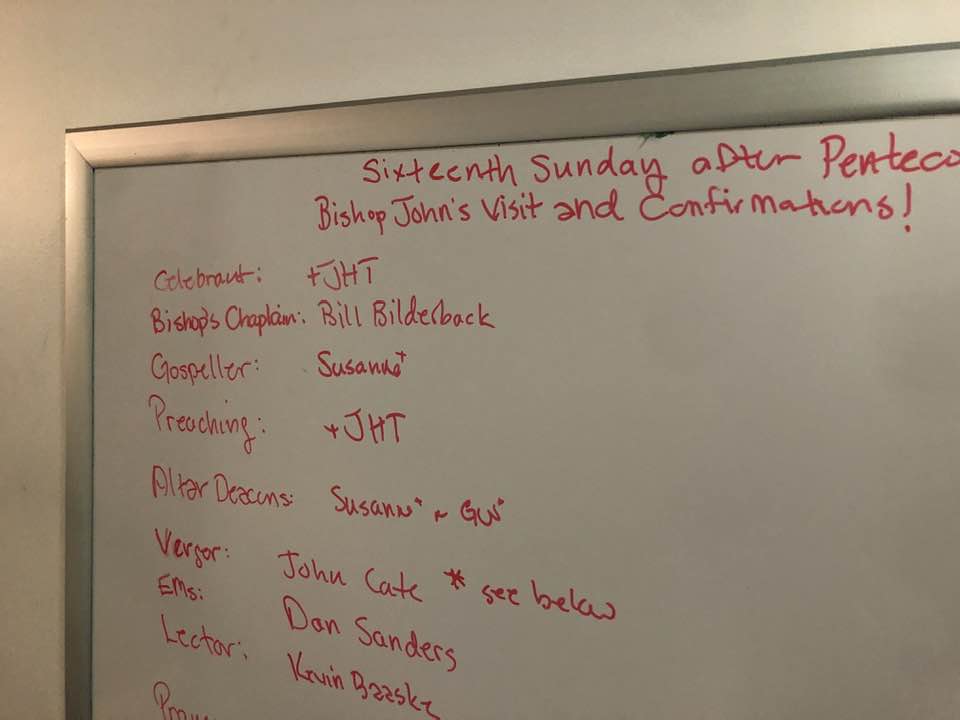 Sixteenth Sunday after Penteco
Bishop John's Visit and Confirmations!
Celebrant: +JHT
Bishop's Chaplain: Bill Bilderback
Gospeller: Susanne+
Preaching: +JHT
Altar Deacons: Susann+ ~ GW+
Verger: John Cate * see below
EMs: Dan Sanders
Lector: Kevin